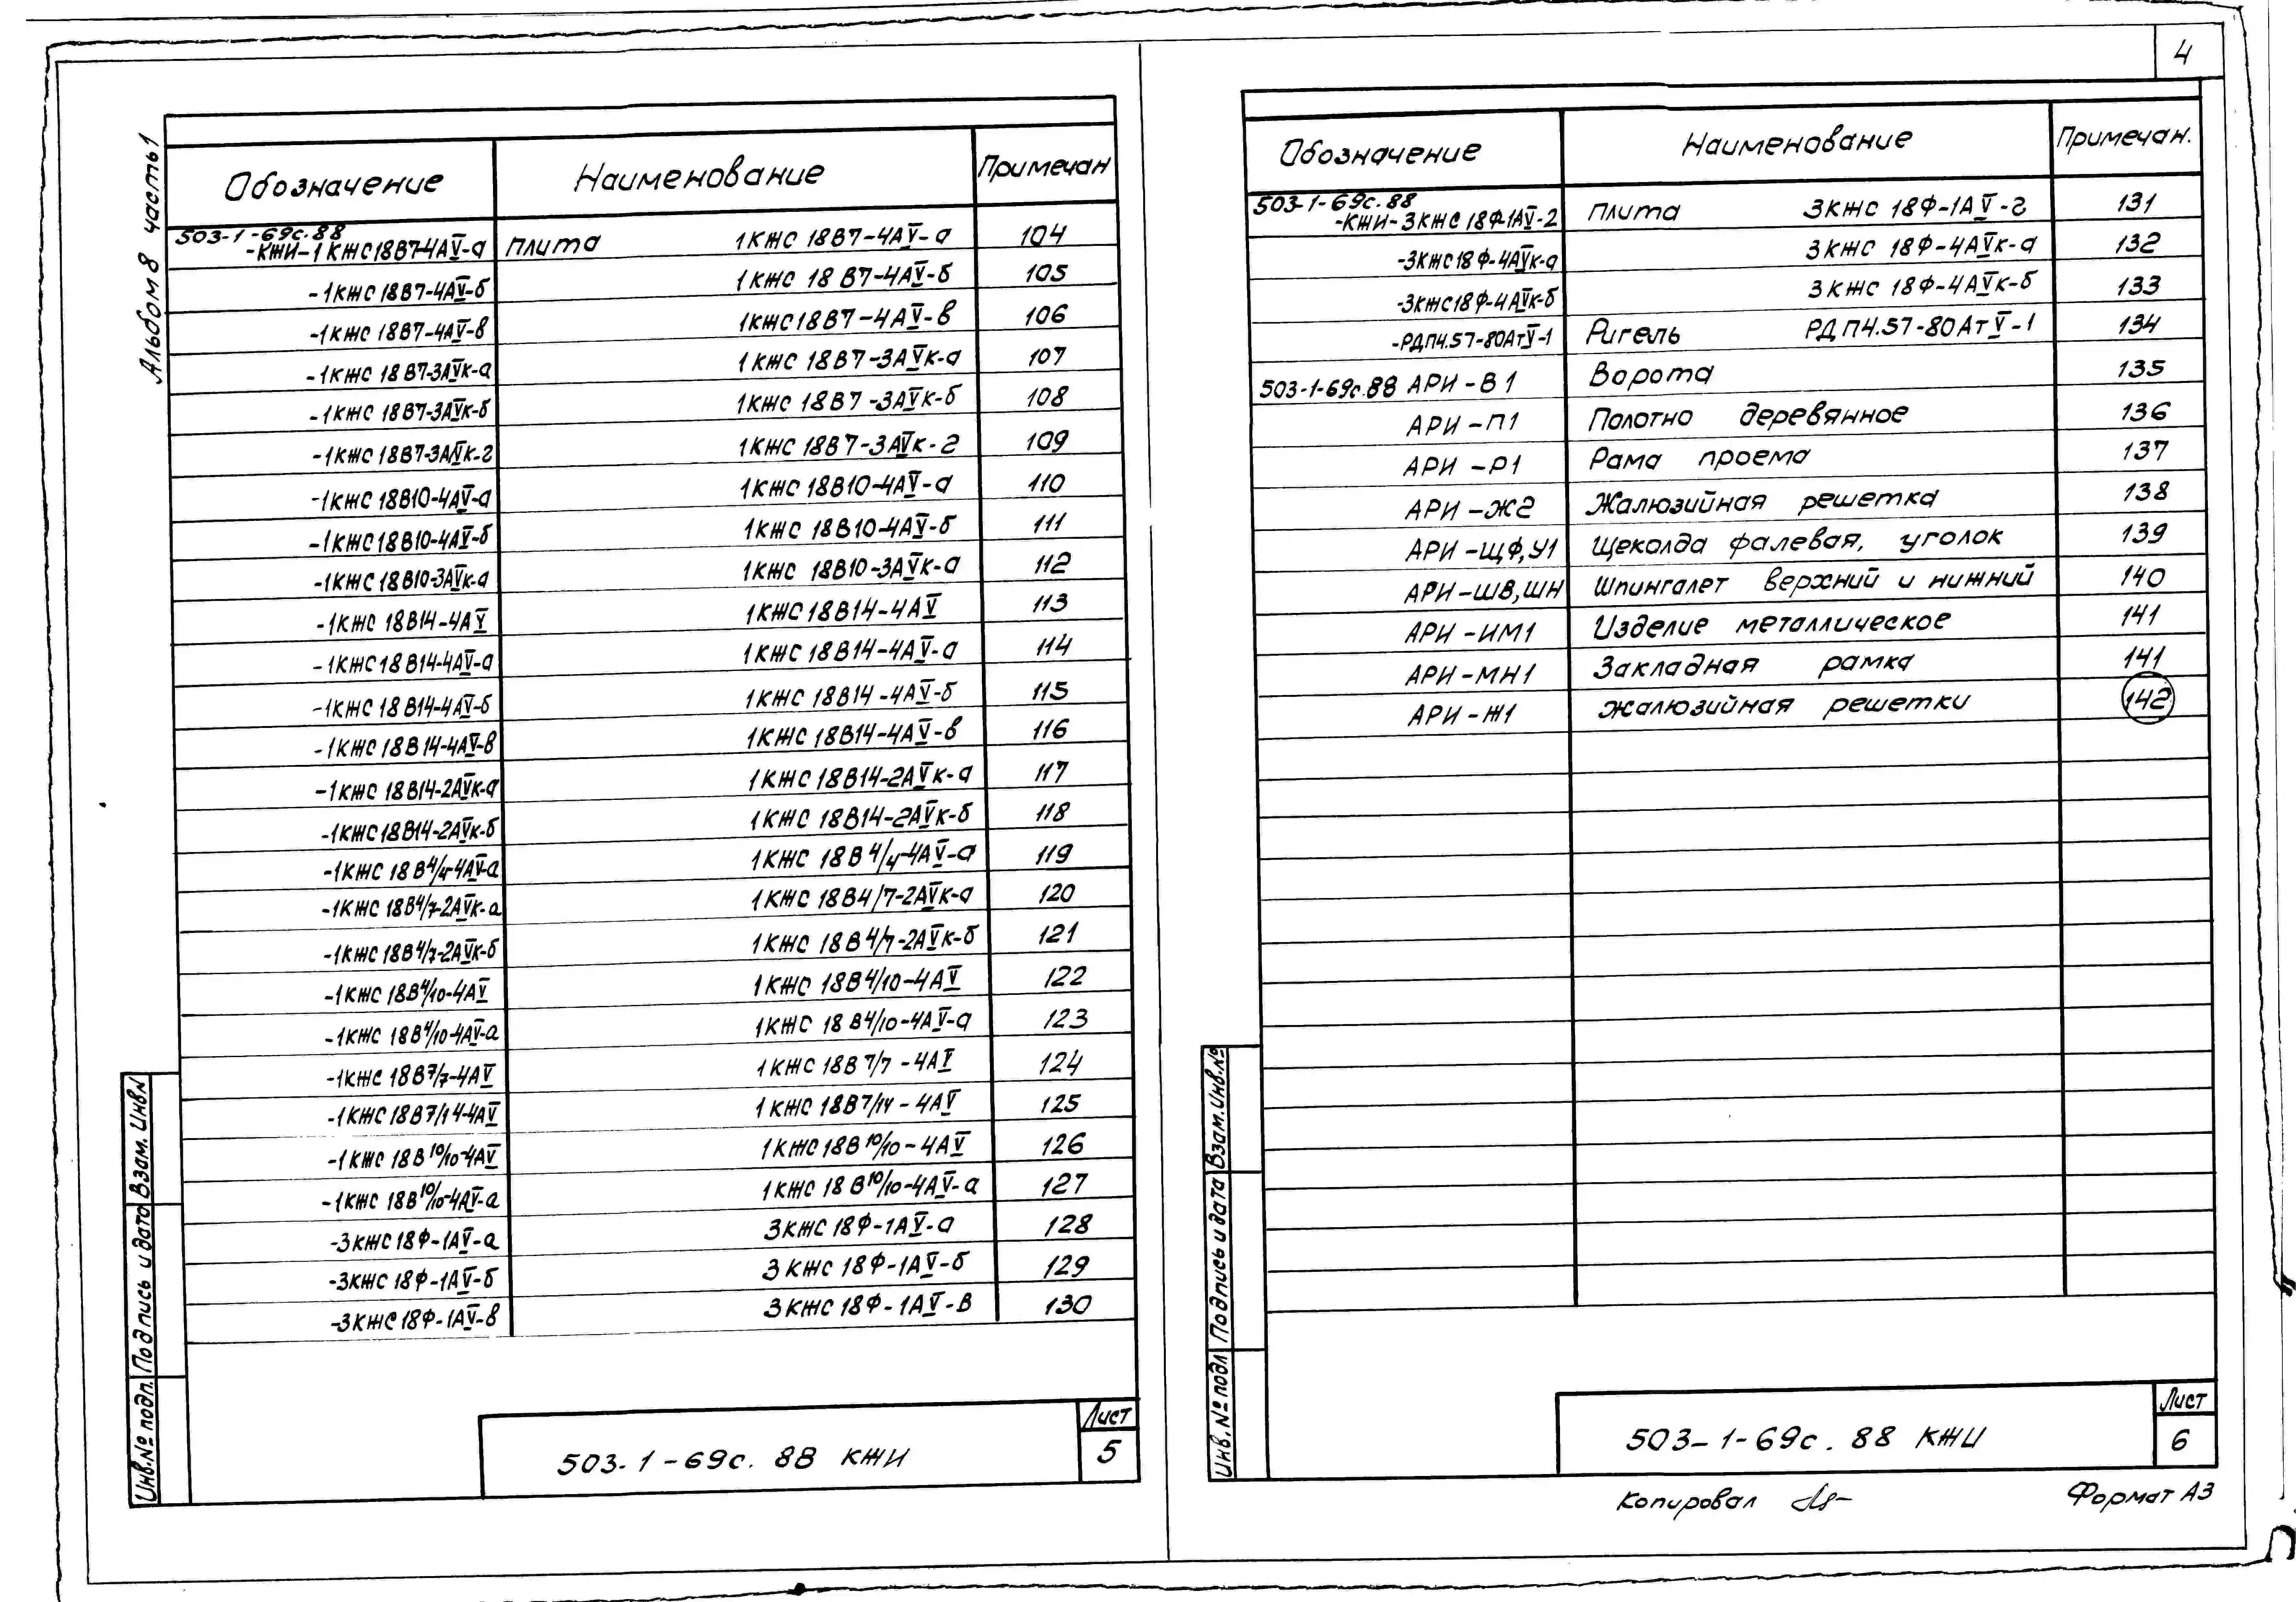 4
Альбом 8 часть 1
Обозначение Наименование Примечан
503-1-69с.88
-КЖИ-1КЖС18В7-4АV-а плита 1КЖС 18В7-4АV-а 104
-1КЖС18В7-4АV-б 1КЖС 18В7-4АV-б 105
-1КЖС18В7-4АV-в 1КЖС18В7-4АV-в 106
-1КЖС 18В7-3АVК-а 1КЖС 18В7-3АVК-а 107
-1КЖС 18В7-3АVК-б 1КЖС 18В7-3АVК-б 108
-1КЖС18В7-3АVК-г 1КЖС 18В7-3АVК-г 109
-1КЖС18В10-4АV-а 1КЖС18В10-4АV-а 110
-1КЖС18В10-4АV-б 1КЖС 18В10-4АV-б 111
-1КЖС18В10-3АVК-а 1КЖС 18В10-3АVК-а 112
-1КЖС 18В14-4АV 1КЖС18В14-4АV 113
-1КЖС18В14-4АV-а 1КЖС18В14-4АV-а 114
-1КЖС18В14-4АV-б 1КЖС 18В14-4АV-б 115
-1КЖС18В14-4АV-в 1КЖС 18В14-4АV-в 116
-1КЖС 18В14-2АVК-а 1КЖС18В14-2АVК-а 117
-1КЖС18В14-2АVК-б 1КЖС 18В14-2АVК-б 118
-1КЖС 18В4/4-4АV-а 1КЖС 18В4/4-4АV-а 119
-1КЖС 18В4/7-2АVК-а 1КЖС 18В4/7-2АVК-а 120
-1КЖС18В4/7-2АVК-б 1КЖС 18В4/7-2АVК-б 121
-1КЖС 18В4/10-4АV 1КЖС 18В4/10-4АV 122
-1КЖС 18В4/10-4АV-а 1КЖС 18В4/10-4АV-а 123
-1КЖС 18В7/7-4АV 1КЖС 18В7/7-4АV 124
-1КЖС18В7/14-4АV 1КЖС 18В7/14-4АV 125
-1КЖС 18В10/10-4АV 1КЖС18В10/10-4АV 126
-1КЖС 18В10/10-4АV-а 1КЖС 18В10/10-4АV-а 127
-3КЖС18Ф-1АV-а 3КЖС 18Ф-1АV-а 128
-3КЖС 18Ф-1АV-б 3КЖС 18Ф-1АV-б 129
-3КЖС18Ф-1АV-в 3КЖС 18Ф-1АV-в 130
Инв.№ подл. Подпись и дата Взам. Инв.№
503-1-69с.88 КЖИ
Лист
5
Обозначение Наименование Примечан.
503-1-69с.88
-КЖИ-3КЖС18Ф-1АV-г плита 3КЖС 18Ф-1АV-г 131
-3КЖС18Ф-4АVК-а 3КЖС 18Ф-4АVК-а 132
-3КЖС18Ф-4АVК-б 3КЖС 18Ф-4АVК-б 133
-РДП4.57-80АтV-1 Ригель РДП4.57-80АтV-1 134
503-1-69с.88 АРИ-В1 Ворота 135
АРИ-П1 Полотно деревянное 136
АРИ-Р1 Рама проема 137
АРИ-Ж2 Жалюзийная решетка 138
АРИ-ЩФ,У1 Щеколда фалевая, уголок 139
АРИ-ШВ,ШН Шпингалет верхний и нижний 140
АРИ-ИМ1 Изделие металлическое 141
АРИ-МН1 Закладная рамка 141
АРИ-Ж1 Жалюзийная решетки 142
Инв.№ подл Подпись и дата Взам.Инв.№
503-1-69с.88 КЖИ
Лист
6
Копировал Формат А3